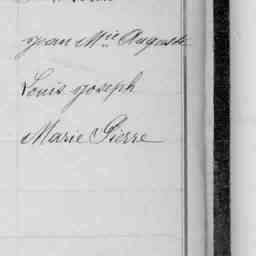 Jean Mie Auguste
Louis Joseph
Marie Pierre